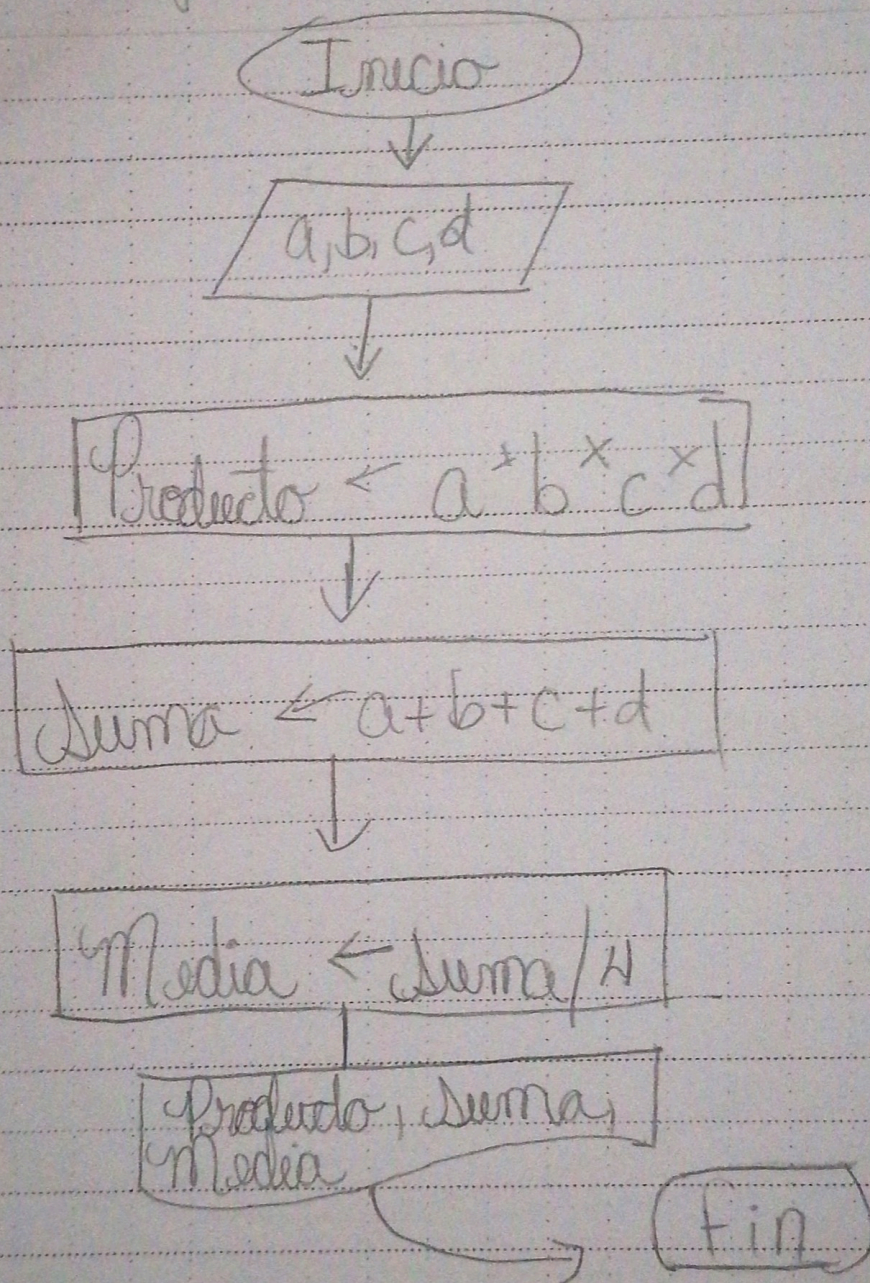 Inicio
a, b, c, d
Producto ← a * b * c * d
Suma ← a + b + c + d
Media ← Suma / 4
Producto, Suma,
Media
Fin